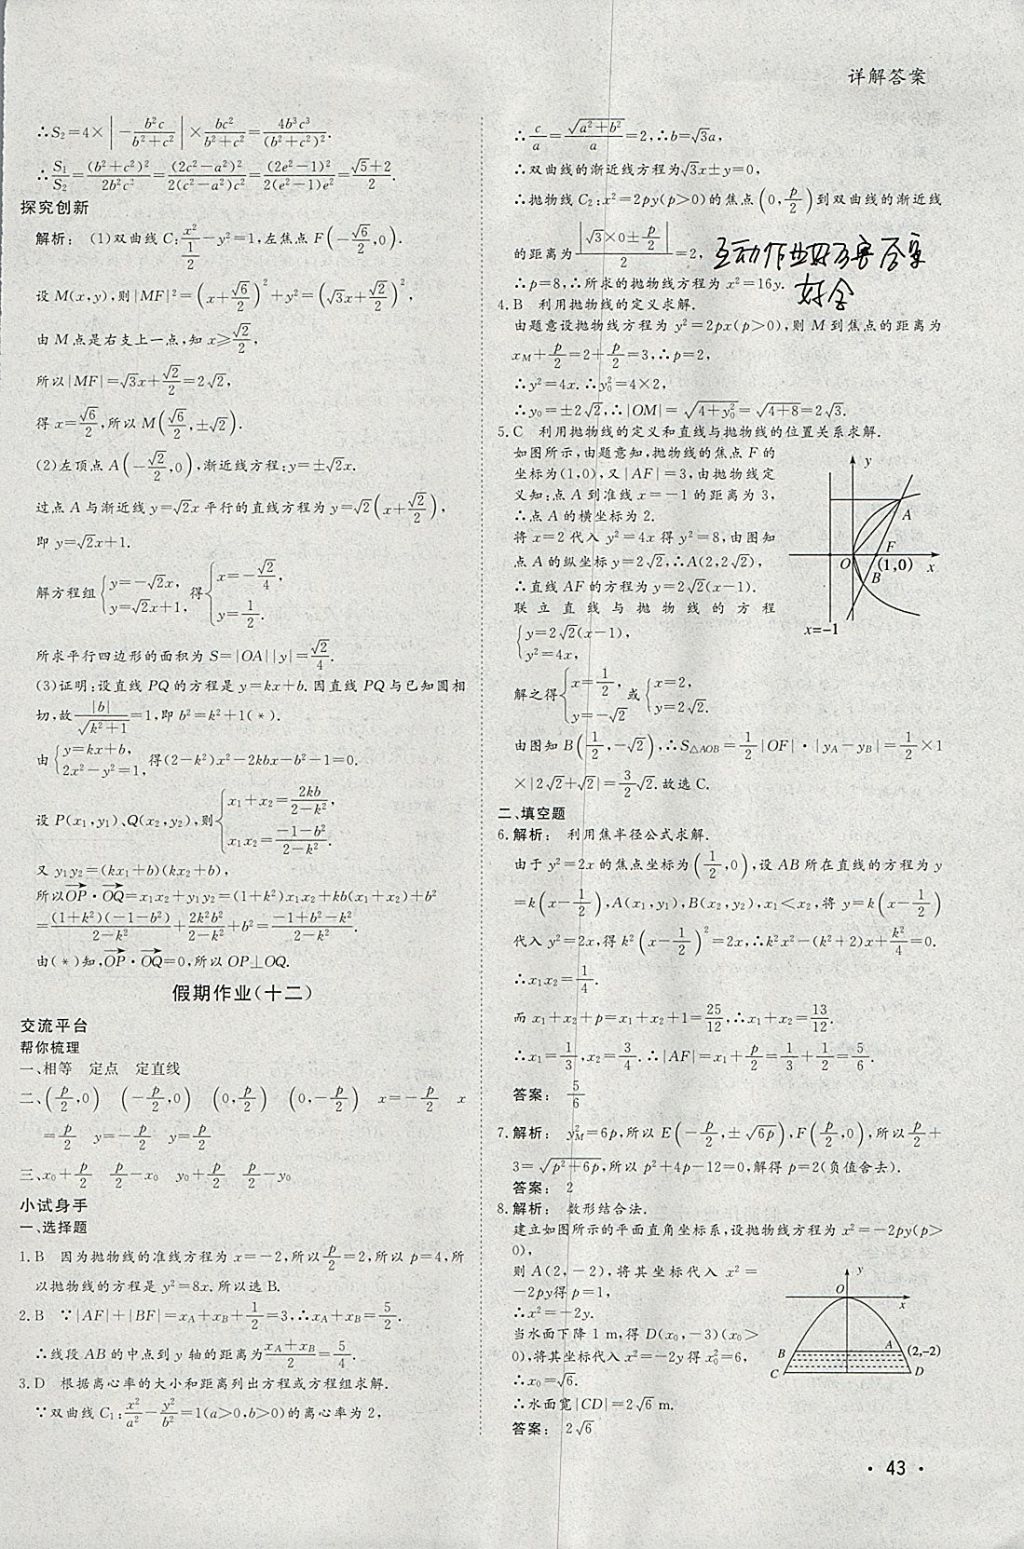 详解答案
∴S₂=4×|-b²c/(b²+c²)|×bc²/(b²+c²)=4b³c³/(b²+c²)².
∴S₁/S₂=(b²+c²)²/(2b²c²)=(2c²-a²)²/(2(c²-a²)c²)=(2e²-1)²/(2(e²-1)e²)=(√5+2)/2.
探究创新
解析：(1)双曲线C:x²/(1/2)-y²=1,左焦点F(-√6/2,0).
设M(x,y),则|MF|²=(x+√6/2)²+y²=(√3x+√2/2)²,
由M点是右支上一点,知x≥√2/2,
所以|MF|=√3x+√2/2=2√2,
得x=√6/2,所以M(√6/2,±√2).
(2)左顶点A(-√2/2,0),渐近线方程:y=±√2x.
过点A与渐近线y=√2x平行的直线方程为y=√2(x+√2/2),
即y=√2x+1.
解方程组{y=-√2x, y=√2x+1, 得{x=-√2/4, y=1/2.
所求平行四边形的面积为S=|OA||y|=√2/4.
(3)证明:设直线PQ的方程是y=kx+b.因直线PQ与已知圆相
切,故|b|/√(k²+1)=1,即b²=k²+1(*).
由{y=kx+b, 2x²-y²=1, 得(2-k²)x²-2kbx-b²-1=0.
设P(x₁,y₁)、Q(x₂,y₂),则{x₁+x₂=2kb/(2-k²), x₁x₂=(-1-b²)/(2-k²).
又y₁y₂=(kx₁+b)(kx₂+b),
所以OP→·OQ→=x₁x₂+y₁y₂=(1+k²)x₁x₂+kb(x₁+x₂)+b²
=(1+k²)(-1-b²)/(2-k²)+2k²b²/(2-k²)+b²=(-1+b²-k²)/(2-k²).
由(*)知,OP→·OQ→=0,所以OP⊥OQ.
假期作业(十二)
交流平台
帮你梳理
一、相等 定点 定直线
二、(p/2,0) (-p/2,0) (0,p/2) (0,-p/2) x=-p/2 x
=p/2 y=-p/2 y=p/2
三、x₀+p/2 p/2-x₀ y₀+p/2 p/2-y₀
小试身手
一、选择题
1.B 因为抛物线的准线方程为x=-2,所以p/2=2,所以p=4,所
以抛物线的方程是y²=8x.所以选B.
2.B ∵|AF|+|BF|=x_A+x_B+1/2=3,∴x_A+x_B=5/2.
∴线段AB的中点到y轴的距离为(x_A+x_B)/2=5/4.
3.D 根据离心率的大小和距离列出方程或方程组求解.
∵双曲线C₁:x²/a²-y²/b²=1(a>0,b>0)的离心率为2,
∴c/a=√(a²+b²)/a=2,∴b=√3a,
∴双曲线的渐近线方程为√3x±y=0,
∴抛物线C₂:x²=2py(p>0)的焦点(0,p/2)到双曲线的渐近线
的距离为|√3×0±p/2|/2=2,
互动作业好历害答案
∴p=8,∴所求的抛物线方程为x²=16y.
好全
4.B 利用抛物线的定义求解.
由题意设抛物线方程为y²=2px(p>0),则M到焦点的距离为
x_M+p/2=2+p/2=3,∴p=2,
∴y²=4x.∴y₀²=4×2,
∴y₀=±2√2,∴|OM|=√(4+y₀²)=√(4+8)=2√3.
5.C 利用抛物线的定义和直线与抛物线的位置关系求解.
如图所示,由题意知,抛物线的焦点F的
坐标为(1,0),又|AF|=3,由抛物线定
义知:点A到准线x=-1的距离为3,
∴点A的横坐标为2.
将x=2代入y²=4x得y²=8,由图知
点A的纵坐标y=2√2,∴A(2,2√2),
∴直线AF的方程为y=2√2(x-1).
联立直线与抛物线的方程
{y=2√2(x-1), y²=4x,
y
A
F
O
(1,0)
B
x
x=-1
解之得{x=1/2, y=-√2 或{x=2, y=2√2.
由图知B(1/2,-√2),∴S△AOB=1/2|OF|·|y_A-y_B|=1/2×1
×|2√2+√2|=3/2√2.故选C.
二、填空题
6.解析: 利用焦半径公式求解.
由于y²=2x的焦点坐标为(1/2,0),设AB所在直线的方程为y
=k(x-1/2),A(x₁,y₁),B(x₂,y₂),x₁<x₂,将y=k(x-1/2)
代入y²=2x,得k²(x-1/2)²=2x,∴k²x²-(k²+2)x+k²/4=0.
∴x₁x₂=1/4.
而x₁+x₂+p=x₁+x₂+1=25/12,∴x₁+x₂=13/12.
∴x₁=1/3,x₂=3/4.∴|AF|=x₁+p/2=1/3+1/2=5/6.
答案: 5/6
7.解析: y_M²=6p,所以E(-p/2,±√(6p)),F(p/2,0),所以p/2+
3=√(p²+6p),所以p²+4p-12=0,解得p=2(负值舍去).
答案: 2
8.解析: 数形结合法.
建立如图所示的平面直角坐标系,设抛物线方程为x²=-2py(p>
0),
则A(2,-2),将其坐标代入x²=
-2py得p=1,
∴x²=-2y.
当水面下降1 m,得D(x₀,-3)(x₀>
0),将其坐标代入x²=-2y得x₀²=6,
∴x₀=√6.
∴水面宽|CD|=2√6 m.
答案: 2√6
y
O
x
B
A
(2,-2)
C
D
· 43 ·